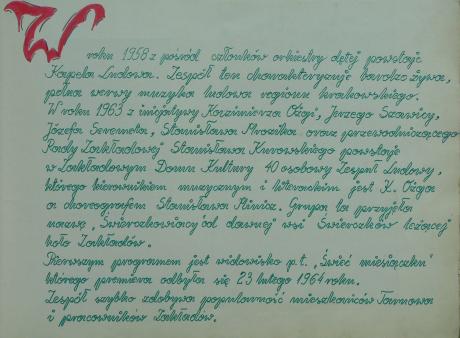 W roku 1958 z pośród członków orkiestry dętej powstaje
Kapela Ludowa. Zespół ten charakteryzuje bardzo żywa,
pełna werwy muzyka ludowa regionu krakowskiego.
W roku 1963 z inicjatywy Kazimierza Ożgi, Jerzego Szawicy,
Józefa Seremeta, Stanisława Mrozika oraz przewodniczącego
Rady Zakładowej Stanisława Kurowskiego powstaje
w Zakładowym Domu Kultury 40 osobowy Zespół Ludowy,
którego kierownikiem muzycznym i literackim jest K. Ożga
a choreografem Stanisława Plinicz. Grupa ta przyjęła
nazwę „Świerczkowiacy" od dawnej wsi Świerczków leżącej
koło Zakładów.
Pierwszym programem jest widowisko p.t. „Świeć miesiączku"
którego premiera odbyła się 23 lutego 1964 roku.
Zespół szybko zdobywa popularność mieszkańców Tarnowa
i pracowników Zakładów.